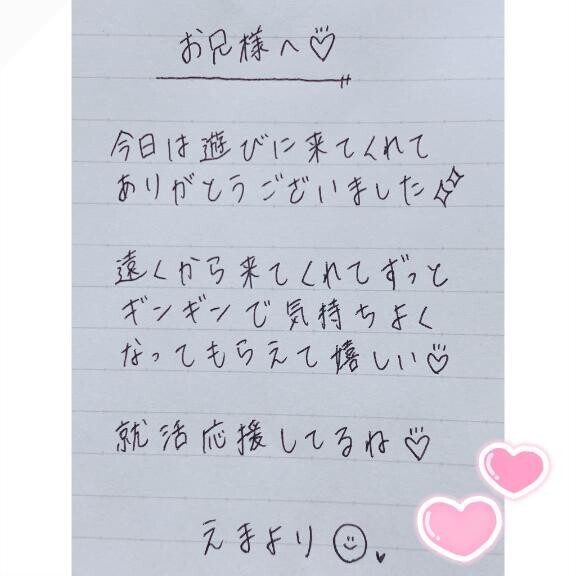 お兄様へ♡
今日は遊びに来てくれて
ありがとうございました✨
遠くから来てくれてずっと
ギンギンで気持ちよく
なってもらえて嬉しい♡
就活応援してるね♡
えまより☺♥